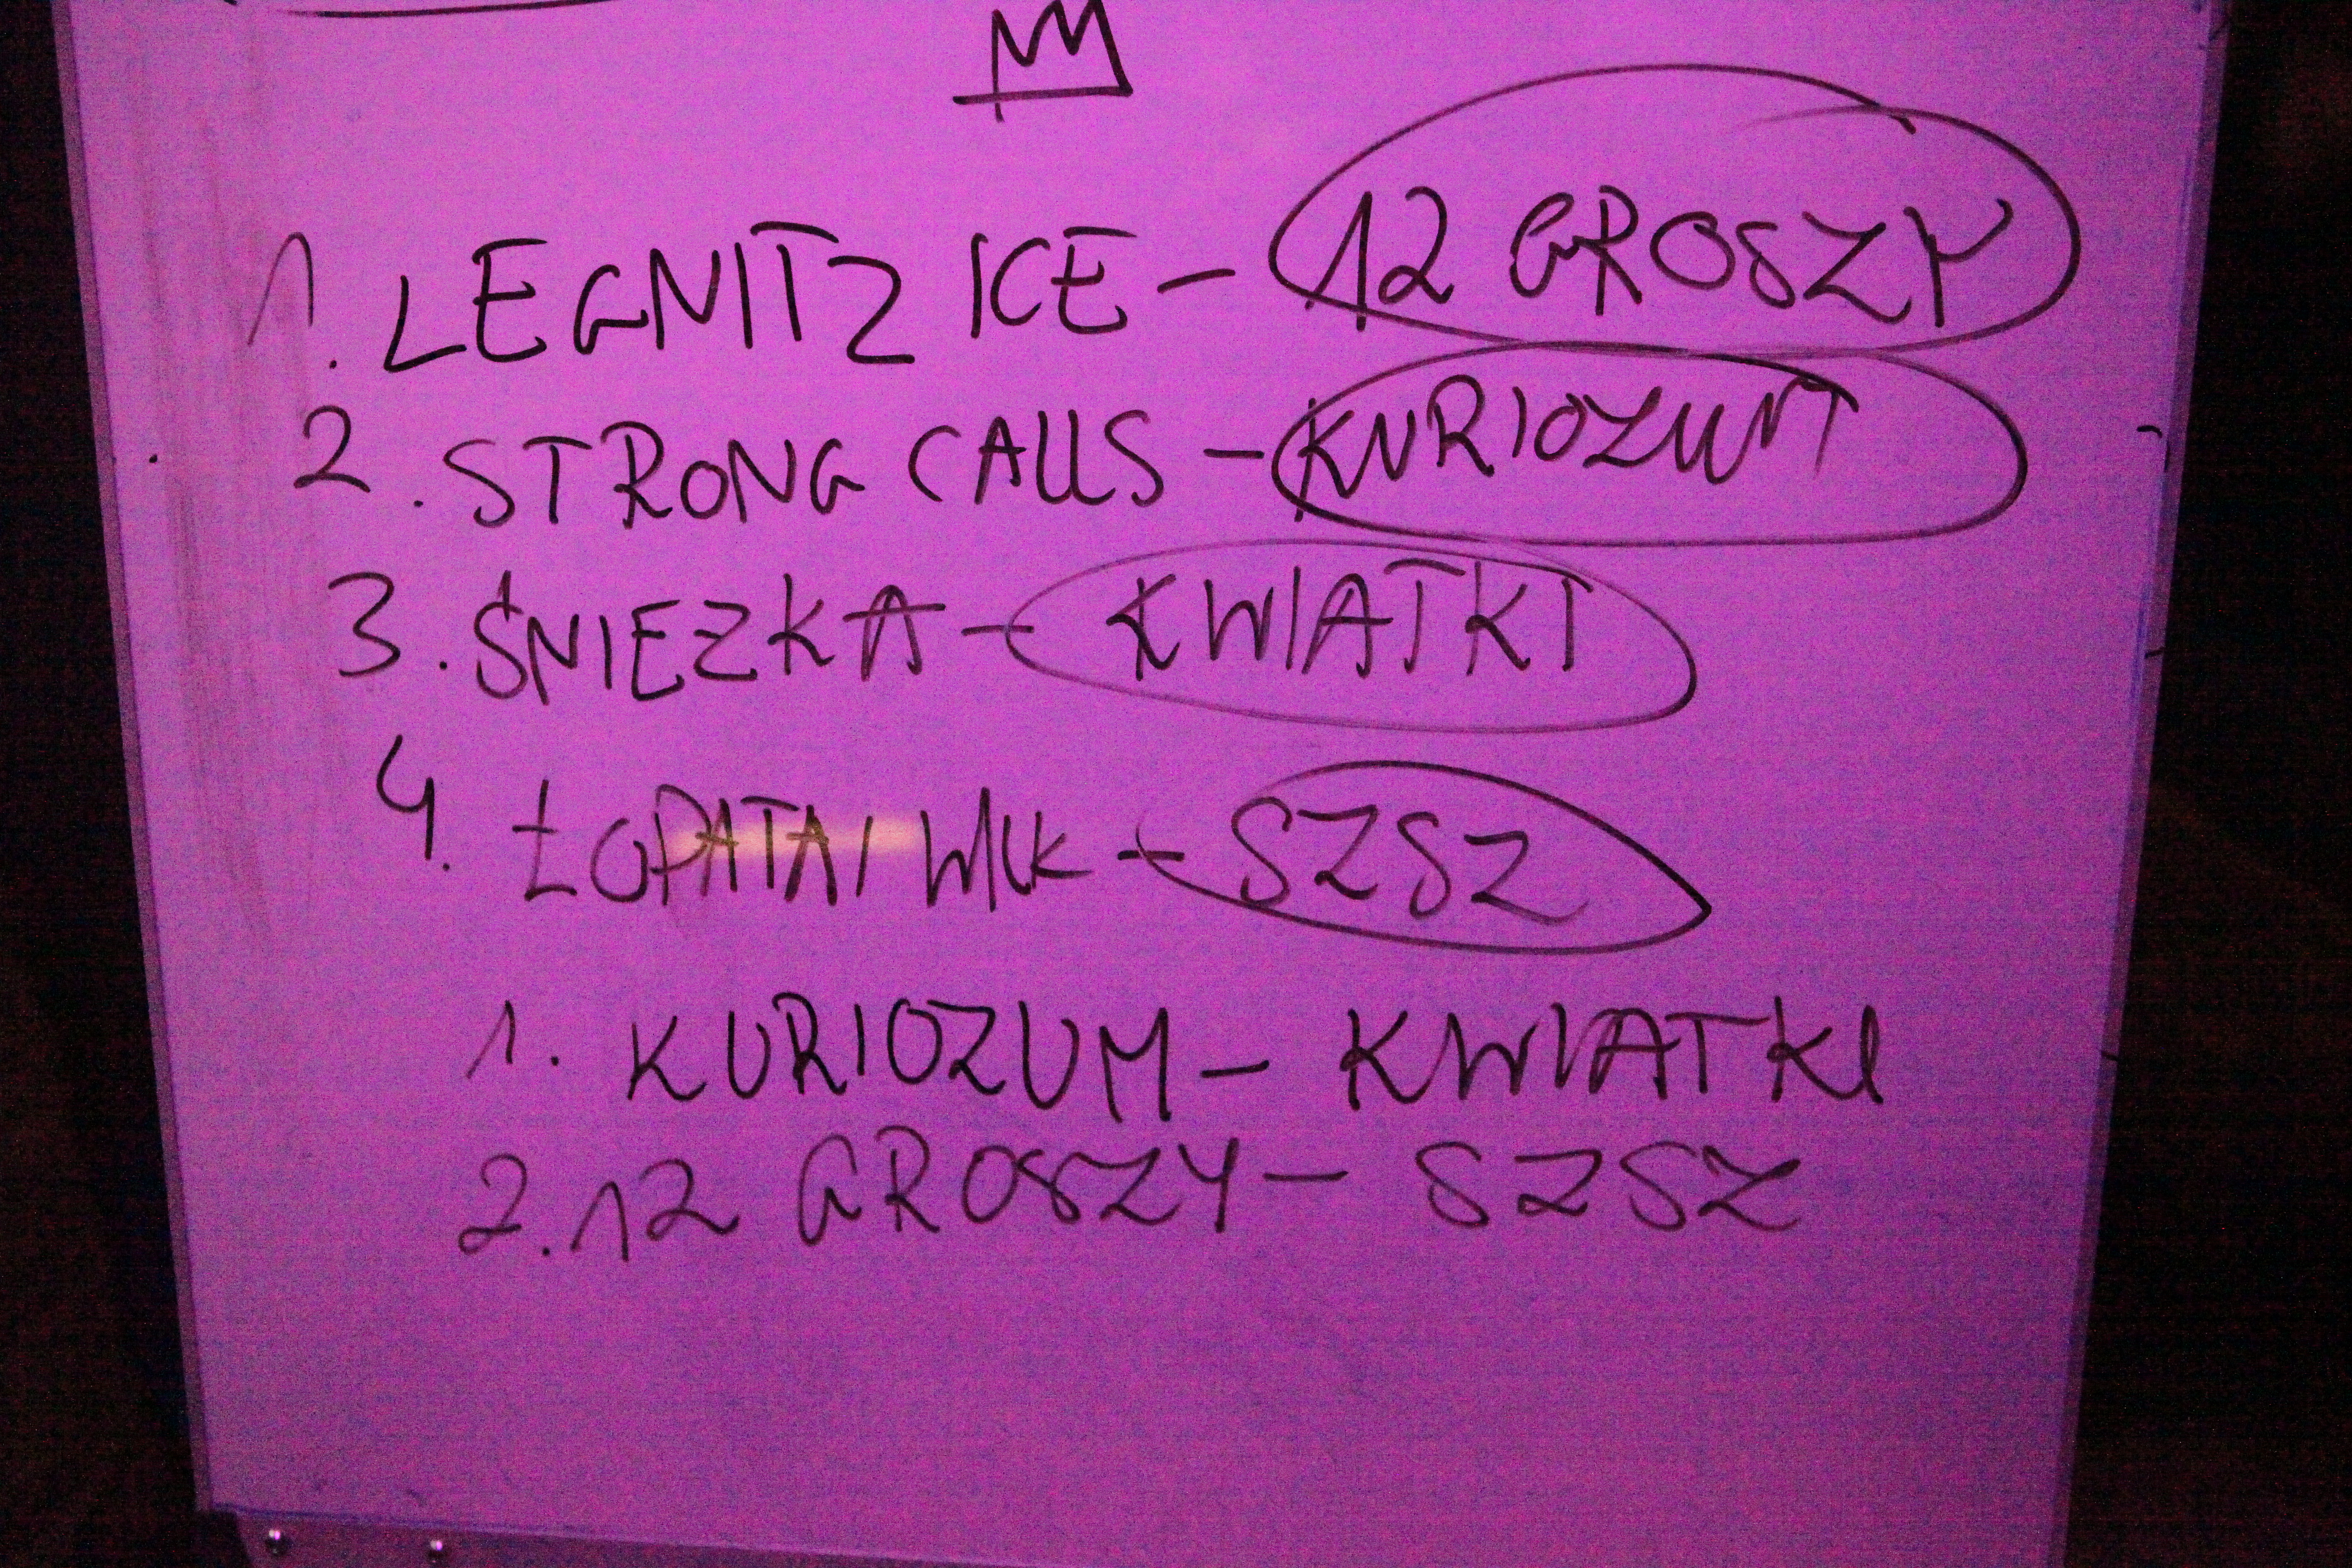 1. LEGNITZ ICE - 12 GROSZY
2. STRONG CALLS - KURIOZUM
3. ŚNIEZKA - KWIATKI
4. ŁOPATA I - SZSZ
1. KURIOZUM - KWIATKI
2. 12 GROSZY - SZSZ